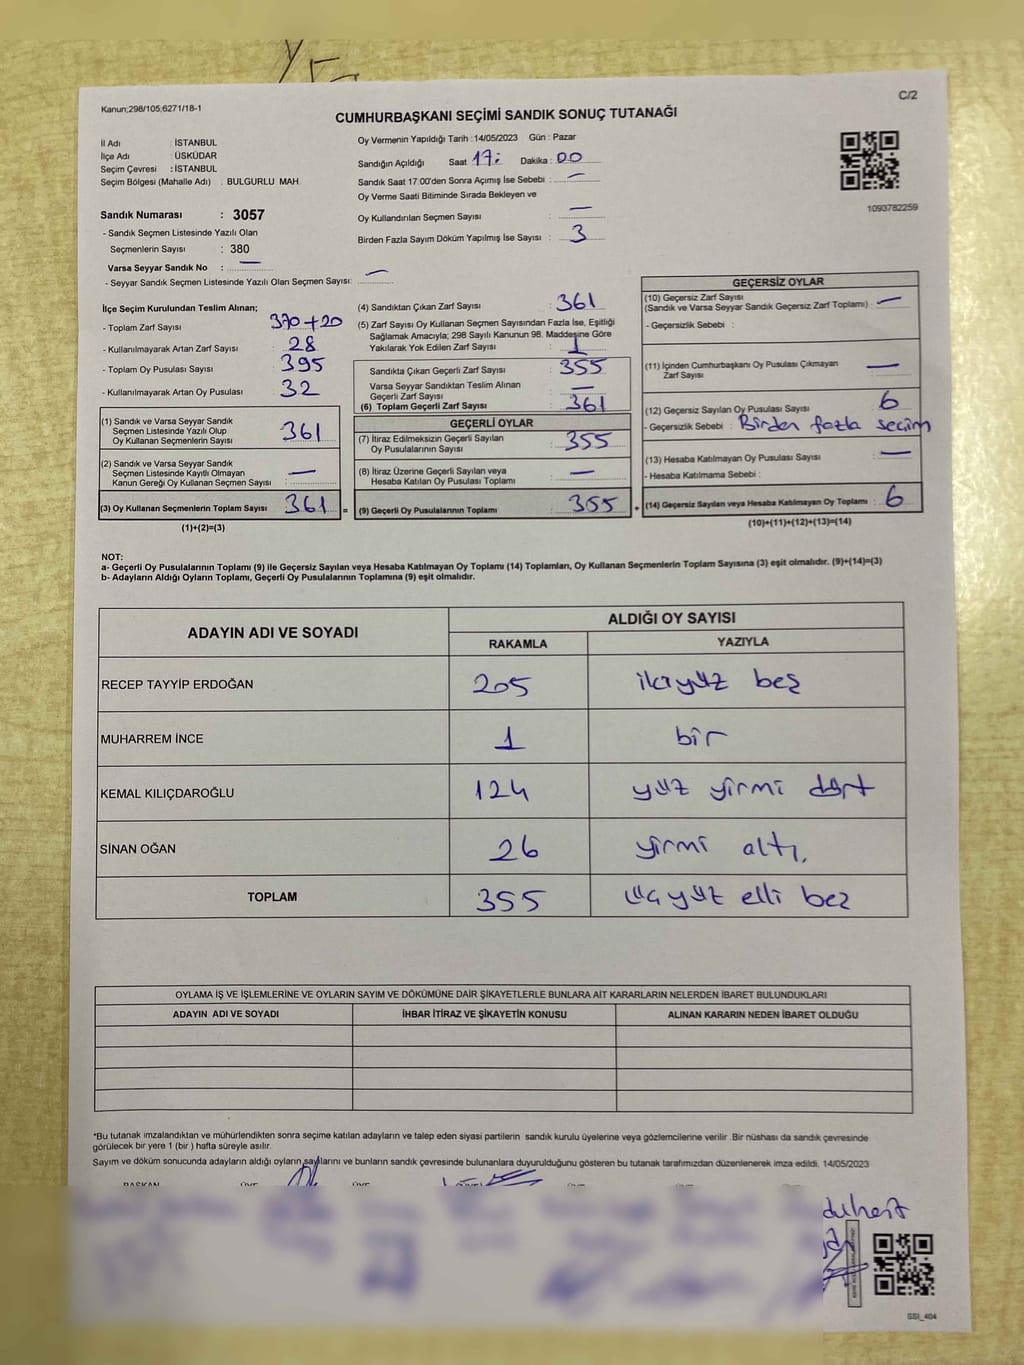 Kanun;298/105;6271/18-1
C/2
CUMHURBAŞKANI SEÇİMİ SANDIK SONUÇ TUTANAĞI
İl Adı : İSTANBUL
İlçe Adı : ÜSKÜDAR
Seçim Çevresi : İSTANBUL
Seçim Bölgesi (Mahalle Adı) : BULGURLU MAH.
Sandık Numarası : 3057
- Sandık Seçmen Listesinde Yazılı Olan
Seçmenlerin Sayısı : 380
Varsa Seyyar Sandık No : —
- Seyyar Sandık Seçmen Listesinde Yazılı Olan Seçmen Sayısı: —
Oy Vermenin Yapıldığı Tarih :14/05/2023 Gün : Pazar
Sandığın Açıldığı Saat 17: Dakika : 00
Sandık Saat 17:00'den Sonra Açımış İse Sebebi : —
Oy Verme Saati Bitiminde Sırada Bekleyen ve
Oy Kullandırılan Seçmen Sayısı : —
Birden Fazla Sayım Döküm Yapılmış İse Sayısı : 3
1093782259
İlçe Seçim Kurulundan Teslim Alınan;
- Toplam Zarf Sayısı : 370+20
- Kullanılmayarak Artan Zarf Sayısı : 28
- Toplam Oy Pusulası Sayısı : 395
- Kullanılmayarak Artan Oy Pusulası : 32
(1) Sandık ve Varsa Seyyar Sandık
Seçmen Listesinde Yazılı Olup
Oy Kullanan Seçmenlerin Sayısı : 361
(2) Sandık ve Varsa Seyyar Sandık
Seçmen Listesinde Kayıtlı Olmayan
Kanun Gereği Oy Kullanan Seçmen Sayısı : —
(3) Oy Kullanan Seçmenlerin Toplam Sayısı : 361 =
(1)+(2)=(3)
(4) Sandıktan Çıkan Zarf Sayısı : 361
(5) Zarf Sayısı Oy Kullanan Seçmen Sayısından Fazla İse, Eşitliği
Sağlamak Amacıyla; 298 Sayılı Kanunun 98. Maddesine Göre
Yakılarak Yok Edilen Zarf Sayısı : 1
Sandıkta Çıkan Geçerli Zarf Sayısı : 355
Varsa Seyyar Sandıktan Teslim Alınan
Geçerli Zarf Sayısı : —
(6) Toplam Geçerli Zarf Sayısı : 361
GEÇERLİ OYLAR
(7) İtiraz Edilmeksizin Geçerli Sayılan
Oy Pusulalarının Sayısı : 355
(8) İtiraz Üzerine Geçerli Sayılan veya
Hesaba Katılan Oy Pusulası Toplamı : —
(9) Geçerli Oy Pusulalarının Toplamı : 355 +
GEÇERSİZ OYLAR
(10) Geçersiz Zarf Sayısı
(Sandık ve Varsa Seyyar Sandık Geçersiz Zarf Toplamı) : —
- Geçersizlik Sebebi :
(11) İçinden Cumhurbaşkanı Oy Pusulası Çıkmayan
Zarf Sayısı : —
(12) Geçersiz Sayılan Oy Pusulası Sayısı : 6
- Geçersizlik Sebebi : Birden fazla seçim
(13) Hesaba Katılmayan Oy Pusulası Sayısı : —
- Hesaba Katılmama Sebebi :
(14) Geçersiz Sayılan veya Hesaba Katılmayan Oy Toplamı : 6
(10)+(11)+(12)+(13)=(14)
NOT:
a- Geçerli Oy Pusulalarının Toplamı (9) ile Geçersiz Sayılan veya Hesaba Katılmayan Oy Toplamı (14) Toplamları, Oy Kullanan Seçmenlerin Toplam Sayısına (3) eşit olmalıdır. (9)+(14)=(3)
b- Adayların Aldığı Oyların Toplamı, Geçerli Oy Pusulalarının Toplamına (9) eşit olmalıdır.
ADAYIN ADI VE SOYADI ALDIĞI OY SAYISI
RAKAMLA YAZIYLA
RECEP TAYYİP ERDOĞAN 205 ikiyüz beş
MUHARREM İNCE 1 bir
KEMAL KILIÇDAROĞLU 124 yüz yirmi dört
SİNAN OĞAN 26 yirmi altı,
TOPLAM 355 üçyüz elli beş
OYLAMA İŞ VE İŞLEMLERİNE VE OYLARIN SAYIM VE DÖKÜMÜNE DAİR ŞİKAYETLERLE BUNLARA AİT KARARLARIN NELERDEN İBARET BULUNDUKLARI
ADAYIN ADI VE SOYADI İHBAR İTİRAZ VE ŞİKAYETİN KONUSU ALINAN KARARIN NEDEN İBARET OLDUĞU
*Bu tutanak imzalandıktan ve mühürlendikten sonra seçime katılan adayların ve talep eden siyasi partilerin sandık kurulu üyelerine veya gözlemcilerine verilir .Bir nüshası da sandık çevresinde
görülecek bir yere 1 (bir ) hafta süreyle asılır.
Sayım ve döküm sonucunda adayların aldığı oyların sayılarını ve bunların sandık çevresinde bulunanlara duyurulduğunu gösteren bu tutanak tarafımızdan düzenlenerek imza edildi. 14/05/2023
BAŞKAN ÜYE ÜYE ÜYE ÜYE
SSI_404